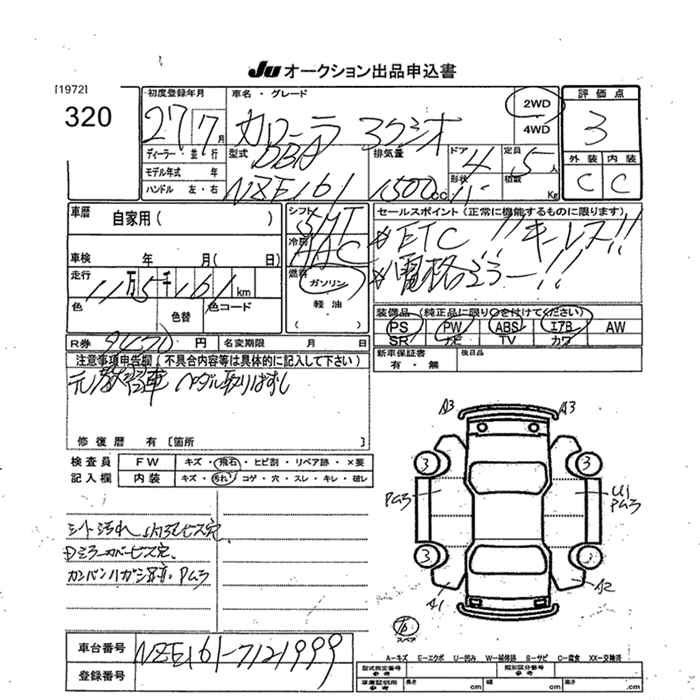 JU オークション出品申込書
[1972]
320
初度登録年月
27 7月
車名・グレード
カローラ アクシオ
2WD
4WD
評価点
3
外装 内装
C C
ディーラー・並行
モデル年式 年
ハンドル 左・右
型式
DBA
NZE161
排気量
1500cc
ドア 4
形状
定員 5人
積載 Kg
車歴
自家用( )
シフト
冷房
AAC
燃料
ガソリン
軽油
セールスポイント(正常に機能するものに限ります)
ETC!! キーレス!!
電格ミラー!!
車検 年 月( 日)
走行
11万5千161km
色
色替
色コード
装備品(純正品に限り○を付けてください)
PS PW ABS エアB AW
SR ナビ TV カワ
R券 円
名変期限 月 日
新車保証書
有・無
後日品
注意事項申告欄(不具合内容等は具体的に記入して下さい)
元教習車 ペダル取りはずし
修復歴 有[箇所 ]
検査員
記入欄
FW キズ・飛石・ヒビ割・リペア跡・×要
内装 キズ・汚れ・コゲ・穴・スレ・キレ・破レ
シート汚れ 内張ビス穴
Dミラーカバービス穴
カンバンハガシ跡 Pムラ
A3 A3
3 3
Pムラ
U1
Pムラ
3 3
A1 A2
スペア
車台番号
NZE161-7121999
登録番号
A-キズ E-エクボ U-凹み W-補修跡 S-サビ C-腐食 XX-交換済
型式指定番号
参考
類別区分番号
参考
車庫証明用
参考
長さ cm
幅 cm
高さ cm